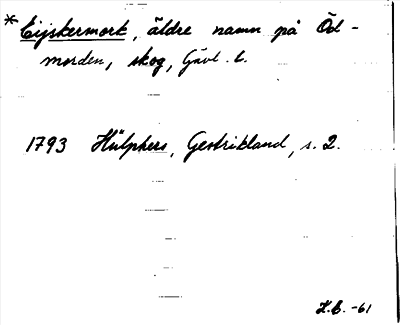 *Eijskermork, äldre namn på Öd-
morden, skog, Gävl. l.
1793 Hülphers, Gestrikland, s. 2.
H.B. -61